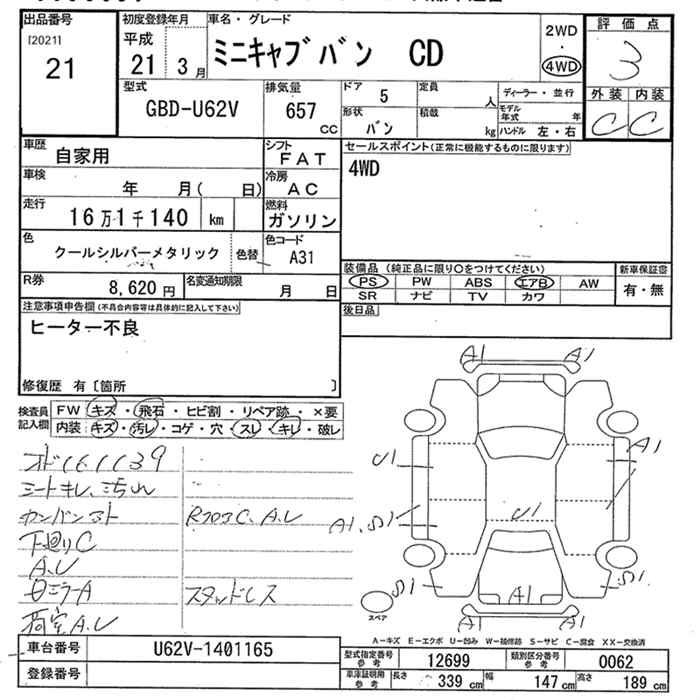 出品番号
[2021]
21
初度登録年月
平成
21 3月
車名・グレード
ミニキャブバン CD
2WD
・
4WD
評価点
3
外装 内装
C C
型式
GBD-U62V
排気量
657
cc
ドア
5
定員
人
形状
バン
積載
kg
ディーラー・並行
モデル年式 年
ハンドル 左・右
車歴
自家用
シフト
FAT
車検
年 月( 日)
冷房
AC
走行
16万1千140 km
燃料
ガソリン
色
クールシルバーメタリック
色替
色コード
A31
R券
8,620円
名変通知期限
月 日
セールスポイント(正常に機能するものに限ります)
4WD
装備品(純正品に限り○をつけてください)
PS PW ABS エアB AW
SR ナビ TV カワ
新車保証書
有・無
後日品
注意事項申告欄(不具合内容等は具体的に記入して下さい)
ヒーター不良
修復歴 有〔箇所 〕
検査員記入欄
FW キズ・飛石・ヒビ割・リペア跡・×要
内装 キズ・汚レ・コゲ・穴・スレ・キレ・破レ
オド161139
シートキレ、汚れ
カンバン
下廻りC
A.U
ミラーA
荷室A.U
RフロアC、A.U
スタッドレス
A1 A1
U1
A1
A1、S1
U1
S1
S1
A1
A1 A1
スペア
A-キズ E-エクボ U-凹み W-補修跡 S-サビ C-腐食 XX-交換済
車台番号
U62V-1401165
登録番号
型式指定番号参考
12699
類別区分番号参考
0062
車庫証明用参考
長さ 339 cm
幅 147 cm
高さ 189 cm